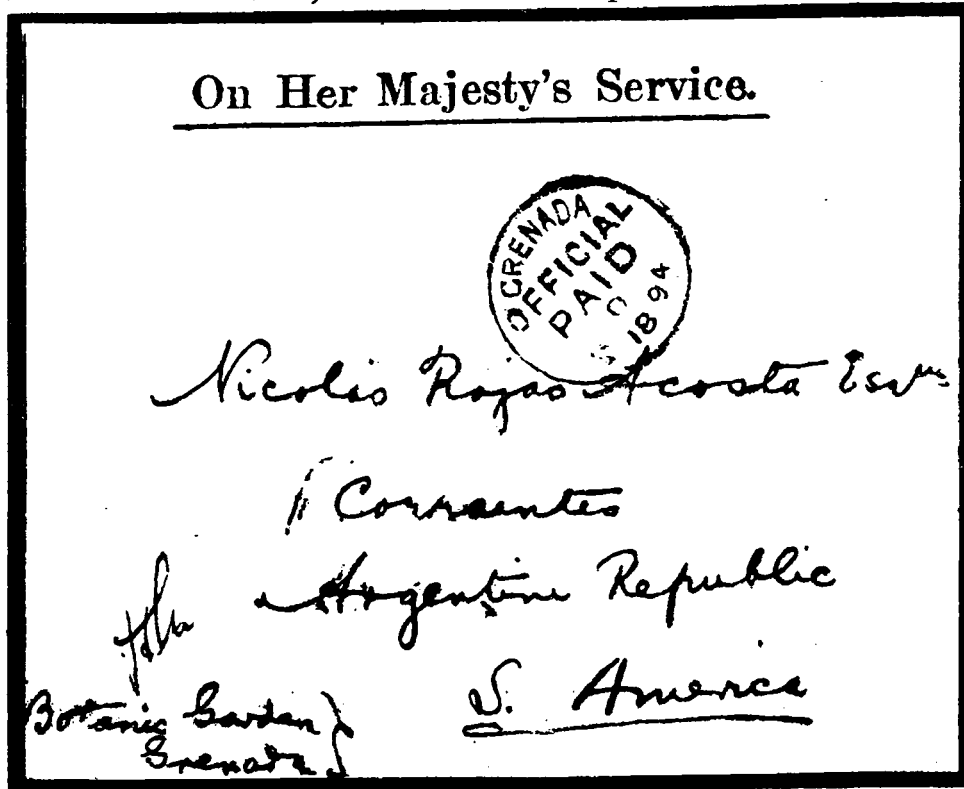 On Her Majesty's Service.
GRENADA
OFFICIAL
PAID
C
18 94
Nicolás Rojas Acosta Esq
Corrientes
Argentine Republic
S. America
Botanic Garden
Grenada